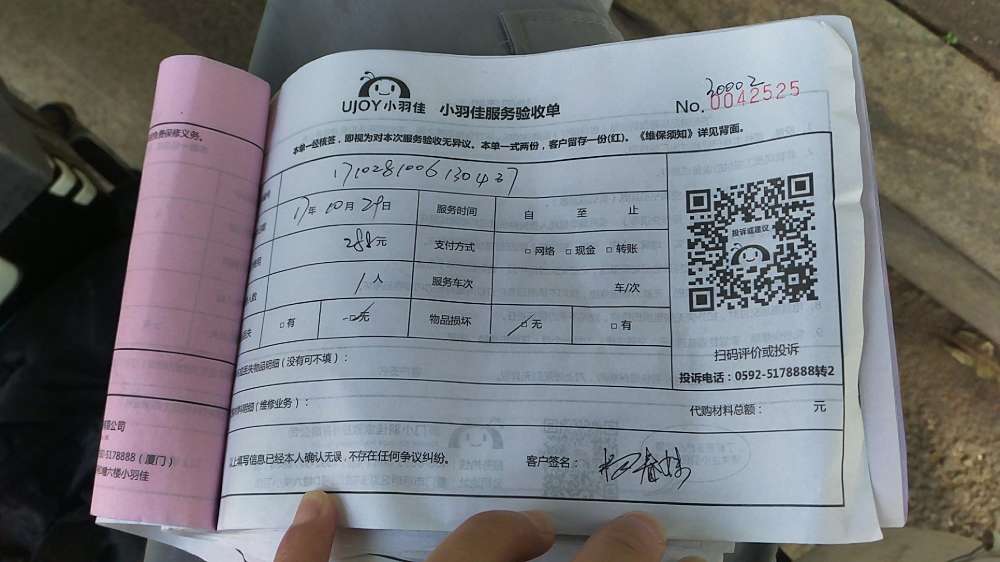 免费保修义务。
UJOY小羽佳 小羽佳服务验收单
30002
No. 0042525
本单一经核签，即视为对本次服务验收无异议。本单一式两份，客户留存一份(红)。《维保须知》详见背面。
1710281006130437
17年10月29日 服务时间 自 至 止
288元 支付方式 □网络 □现金 □转账
1人 服务车次 车/次
□有 □无 物品损坏 □无 □有
投诉或建议
扫码评价或投诉
丢失物品明细（没有可不填）：
投诉电话：0592-5178888转2
明细（维修业务）：
代购材料总额： 元
公司
5178888（厦门）
六楼小羽佳
以上填写信息已经本人确认无误，不存在任何争议纠纷。
客户签名：